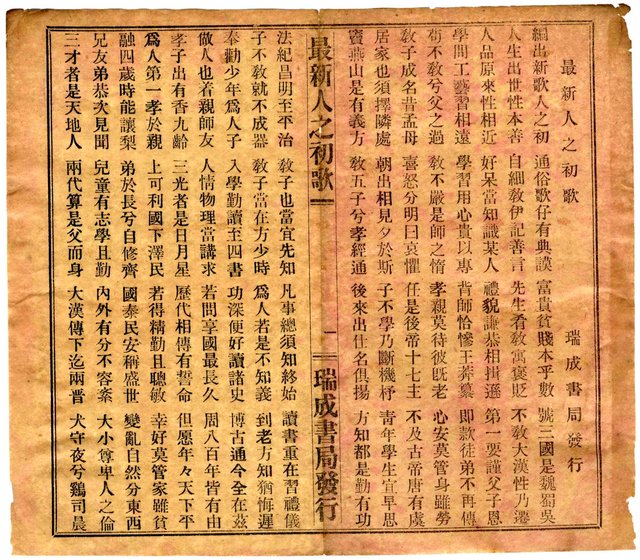 最新人之初歌 瑞成書局發行
編出新歌人之初 通俗歌仔有典謨 富貴貧賤本乎數 號三國是魏蜀吳
人生出世性本善 自細教伊記善言 先生肴教寓褒貶 不教大漢性乃遷
人品原來性相近 好呆當知識某人 禮貌謙恭相揖遜 第一要謹父子恩
學問工藝習相遠 學習用心貴以專 背師恰慘王莽纂 即款徒弟不再傳
苟不教兮父之過 教不嚴是師之惰 孝親莫待彼既老 心安莫管身雖勞
教子成名昔孟母 喜怒分明曰哀懼 任是後帝十七主 不及古帝唐有虞
居家也須擇隣處 朝出相見夕於斯 子不學乃斷機杼 青年學生宜早思
竇燕山是有義方 教五子兮孝經通 後來出仕名俱揚 方知都是勤有功
最新人之初歌 一 瑞成書局發行
法紀昌明至平治 教子也當宜先知 凡事總須知終始 讀書重在習禮儀
子不教就不成器 教子當在方少時 為人若是不知義 到老方知猶悔遲
奉勸少年為人子 入學勤讀至四書 功深便好讀諸史 博古通今全在茲
做人也着親師友 人情物理當講求 若問享國最長久 周八百年皆有由
孝子出有香九齡 三光者是日月星 歷代相傳有誓命 但愿年々天下平
為人第一孝於親 上可利國下澤民 若得精勤且聰敏 幸好莫管家雖貧
融四歲時能讓梨 弟於長兮自修齊 國泰民安稱盛世 變亂自然分東西
兄友弟恭次見聞 兒童有志學且勤 內外有分不容紊 大小尊卑人之倫
三才者是天地人 兩代算是父而身 大漢傳下迄兩晉 犬守夜兮鷄司晨